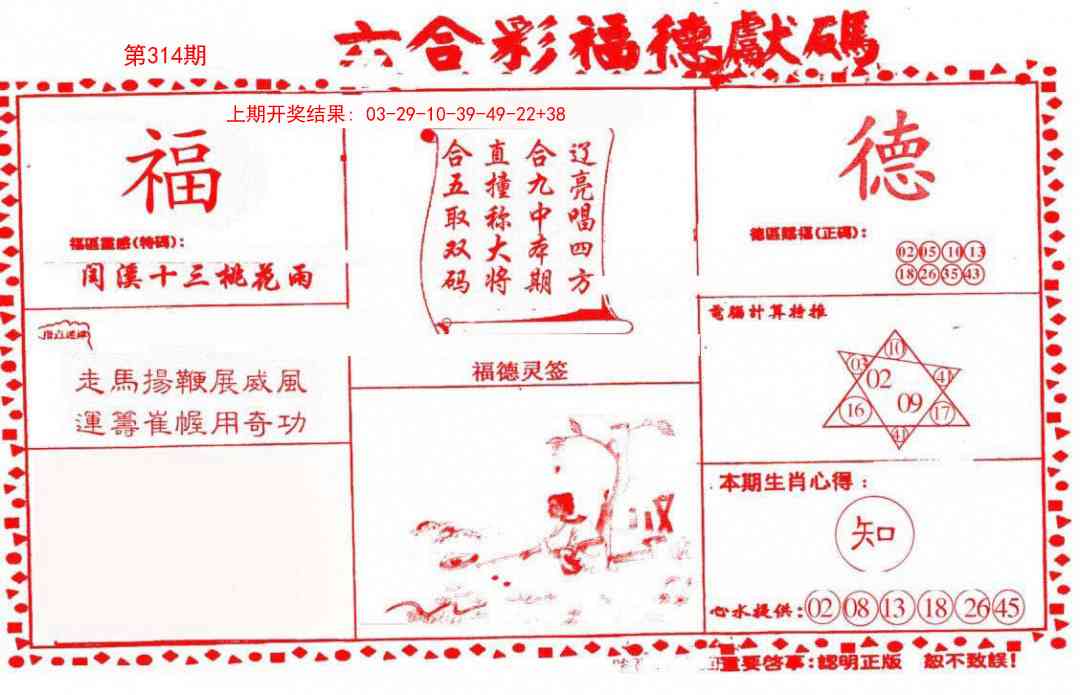 六合彩福德獻碼
第314期
上期开奖结果: 03-29-10-39-49-22+38
福
福區靈感(特碼):
闰溪十三桃花雨
走馬揚鞭展威風
運籌崔幄用奇功
辽亮唱四方
合九中本期
直撞称大将
合五取双码
福德灵签
德
德區賜福(正碼):
02 05 10 13
18 26 35 43
電腦計算特推
10
03 41
02
09
16 17
41
本期生肖心得:
知
心水提供:02 08 13 18 26 45
重要啓事:認明正版 恕不致誤!